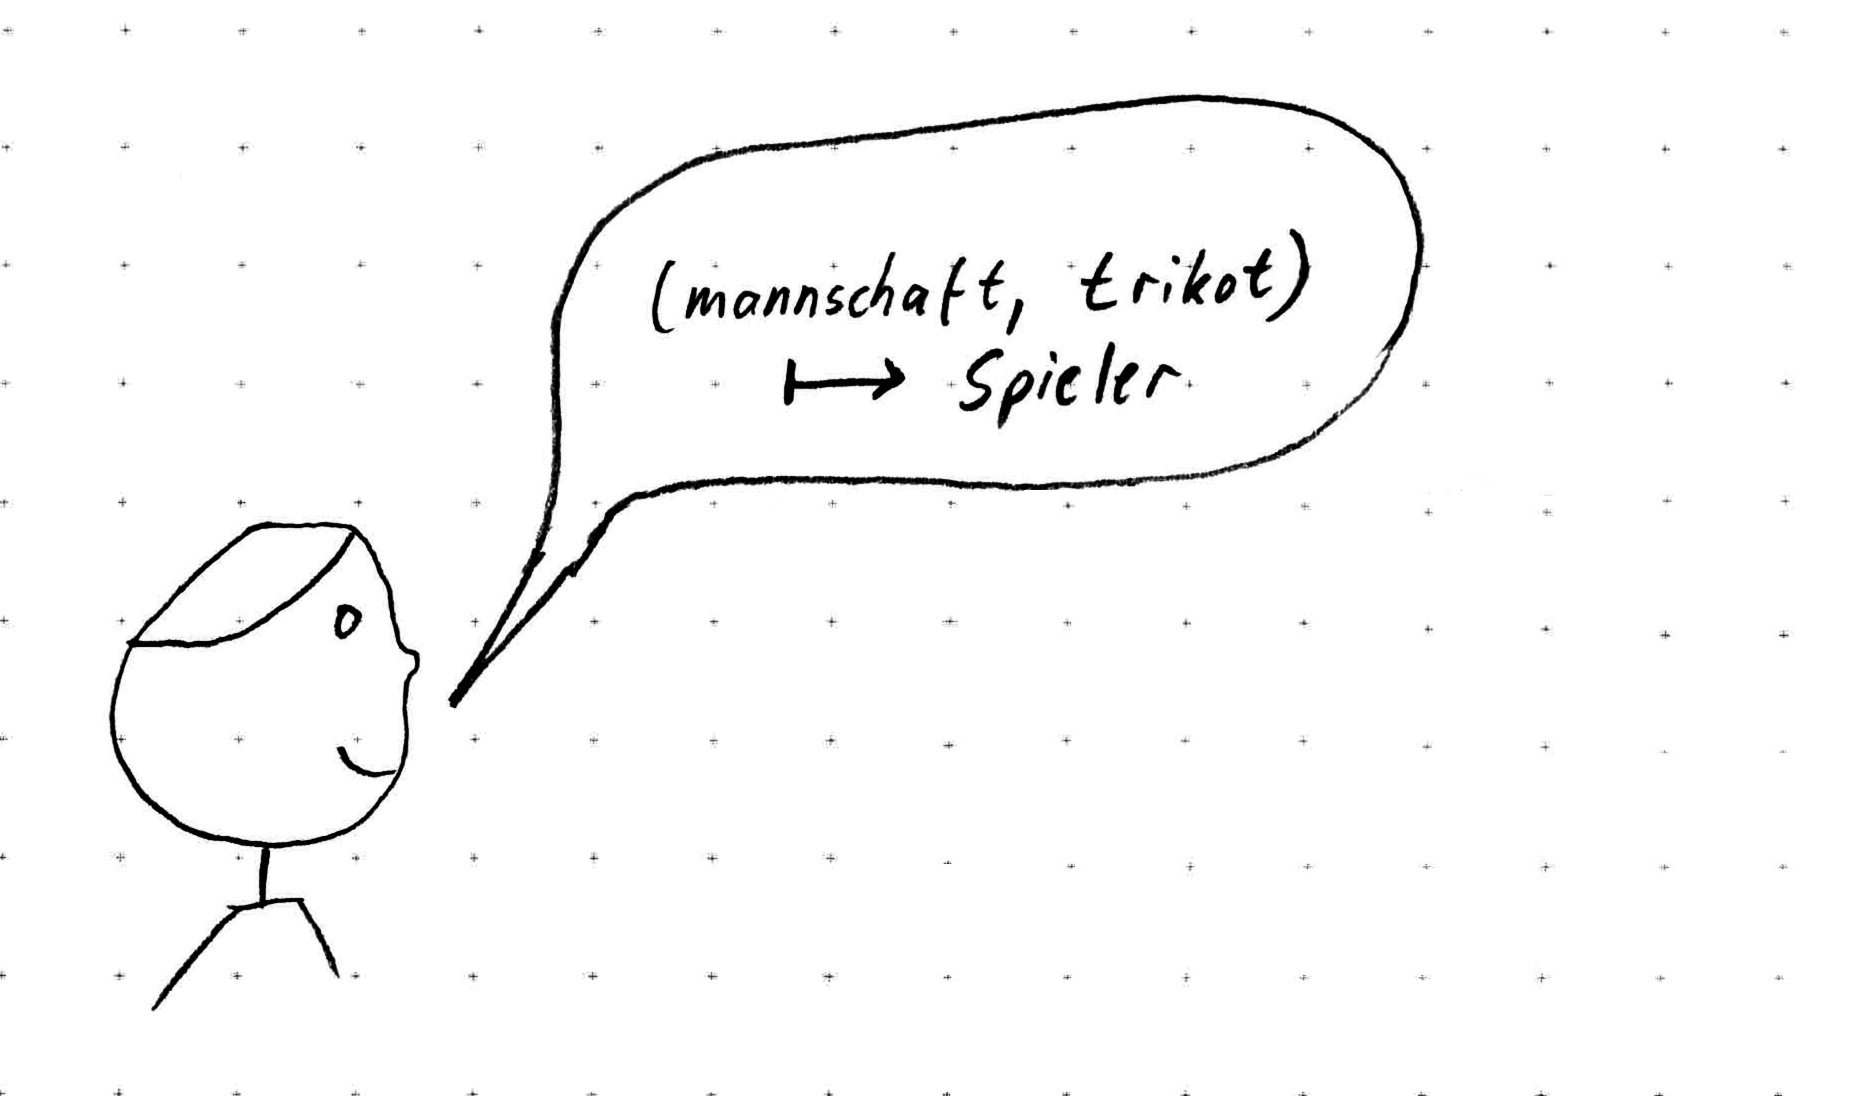 (mannschaft, trikot)
↦ Spieler